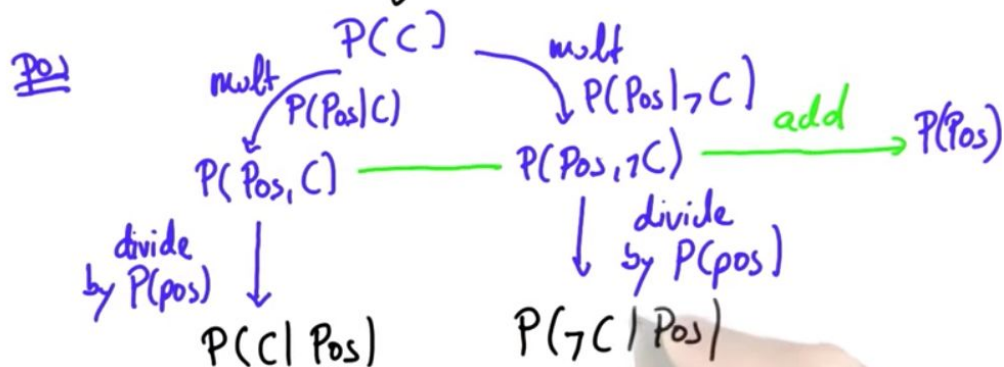 P(C)
Pos
mult
P(Pos|C)
mult
P(Pos|¬C)
add
P(Pos)
P(Pos, C)
P(Pos, ¬C)
divide
by P(pos)
divide
by P(pos)
P(C| Pos)
P(¬C| Pos)